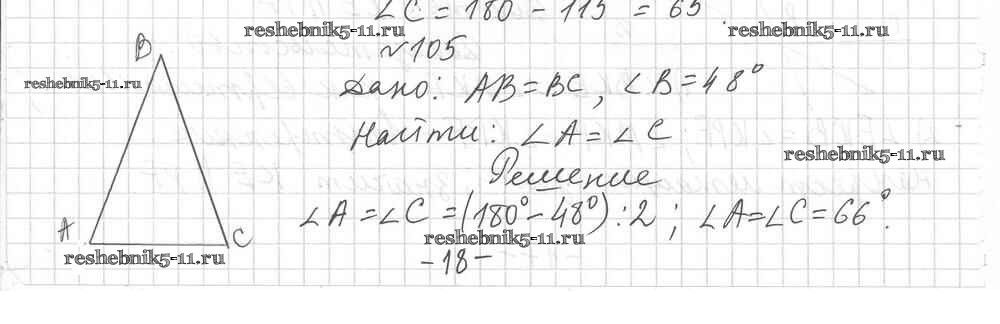 ∠C = 180 - 115 = 65
reshebnik5-11.ru reshebnik5-11.ru
№105
B
reshebnik5-11.ru
Дано: AB = BC, ∠B = 48°
Найти: ∠A = ∠C
reshebnik5-11.ru
Решение
∠A = ∠C = (180° - 48°) : 2 ; ∠A = ∠C = 66°.
A C
reshebnik5-11.ru
reshebnik5-11.ru
-18-